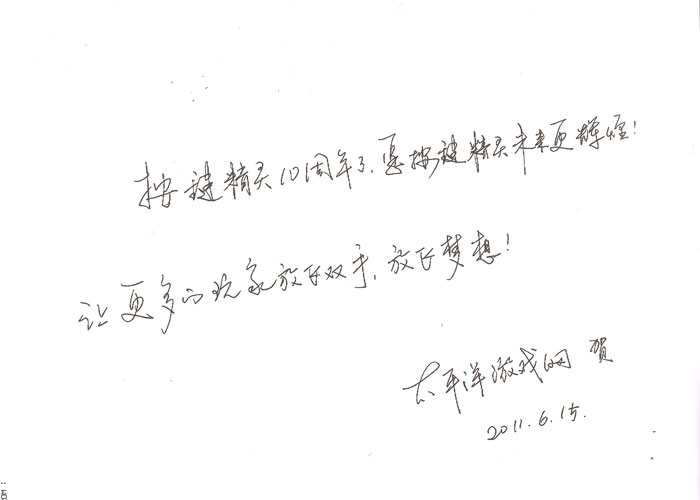 按键精灵10周年了，愿按键精灵未来更辉煌！
让更多的玩家放飞双手，放飞梦想！
太平洋游戏网 贺
2011.6.15.